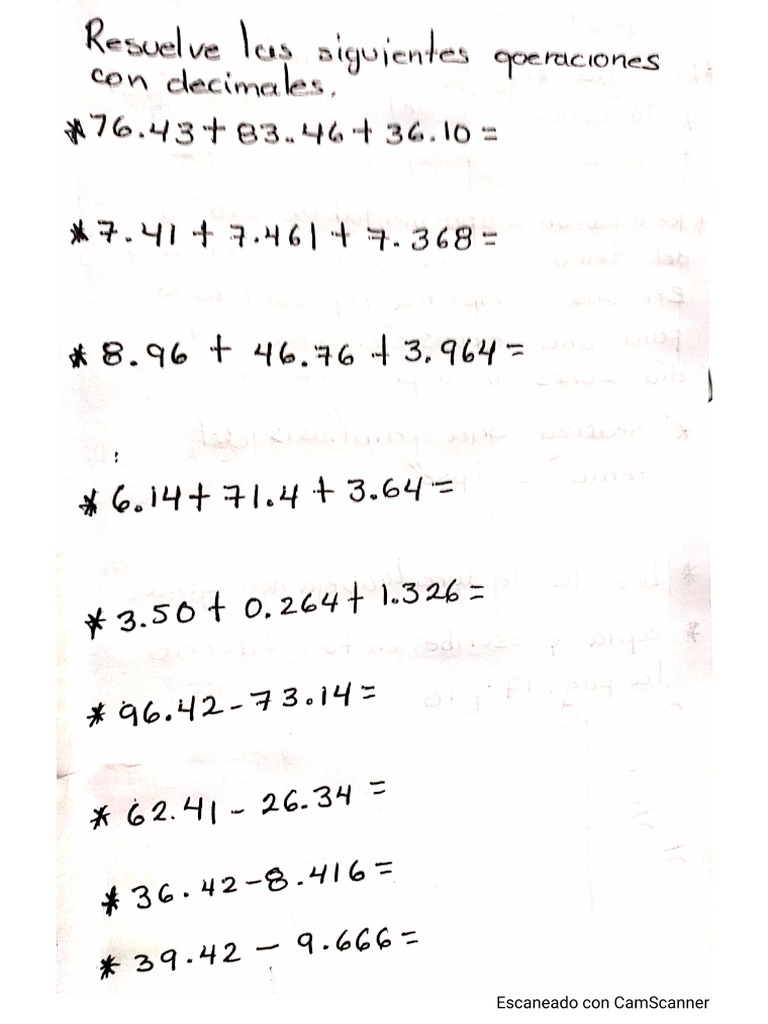 Resuelve las siguientes operaciones
con decimales.
*76.43+83.46+36.10=
*7.41+7.461+7.368=
*8.96 + 46.76 +3.964=
*6.14+71.4+3.64=
*3.50+ 0.264+1.326=
*96.42-73.14=
*62.41-26.34=
*36.42-8.416=
*39.42 - 9.666=
Escaneado con CamScanner